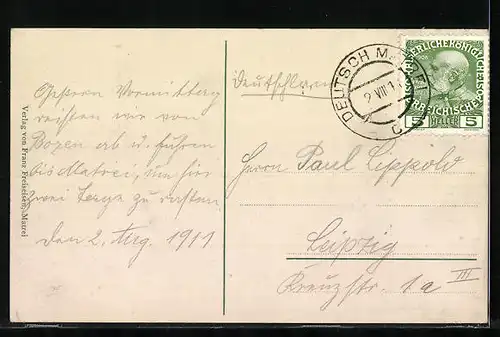 Gestern Vormittag
reisten wir von
Bozen ab u. fuhren
bis Matrei, um hier
zwei Tage zu rasten.
den 2. Aug. 1911
Verlag von Franz Freiseisen, Matrei
Deutschland
DEUTSCH MATREI
2 VIII 1
C
KAISERLICHE KÖNIGLICHE
ÖSTERREICHISCHE
5 HELLER 5
Herrn Paul Lippold
Leipzig
Kreuzstr. 1a III